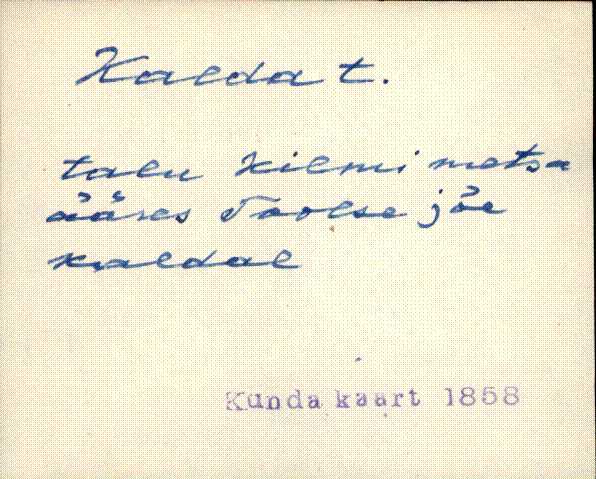 Kalda t.
talu Kilmi metsa
ääres Toolse jõe
kaldal
Kunda kaart 1858